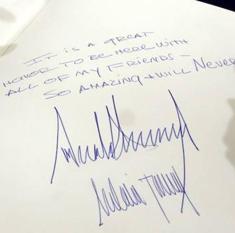 IT IS A GREAT
HONOR TO BE HERE WITH
ALL OF MY FRIENDS -
SO AMAZING + WILL Never
Melania Trump